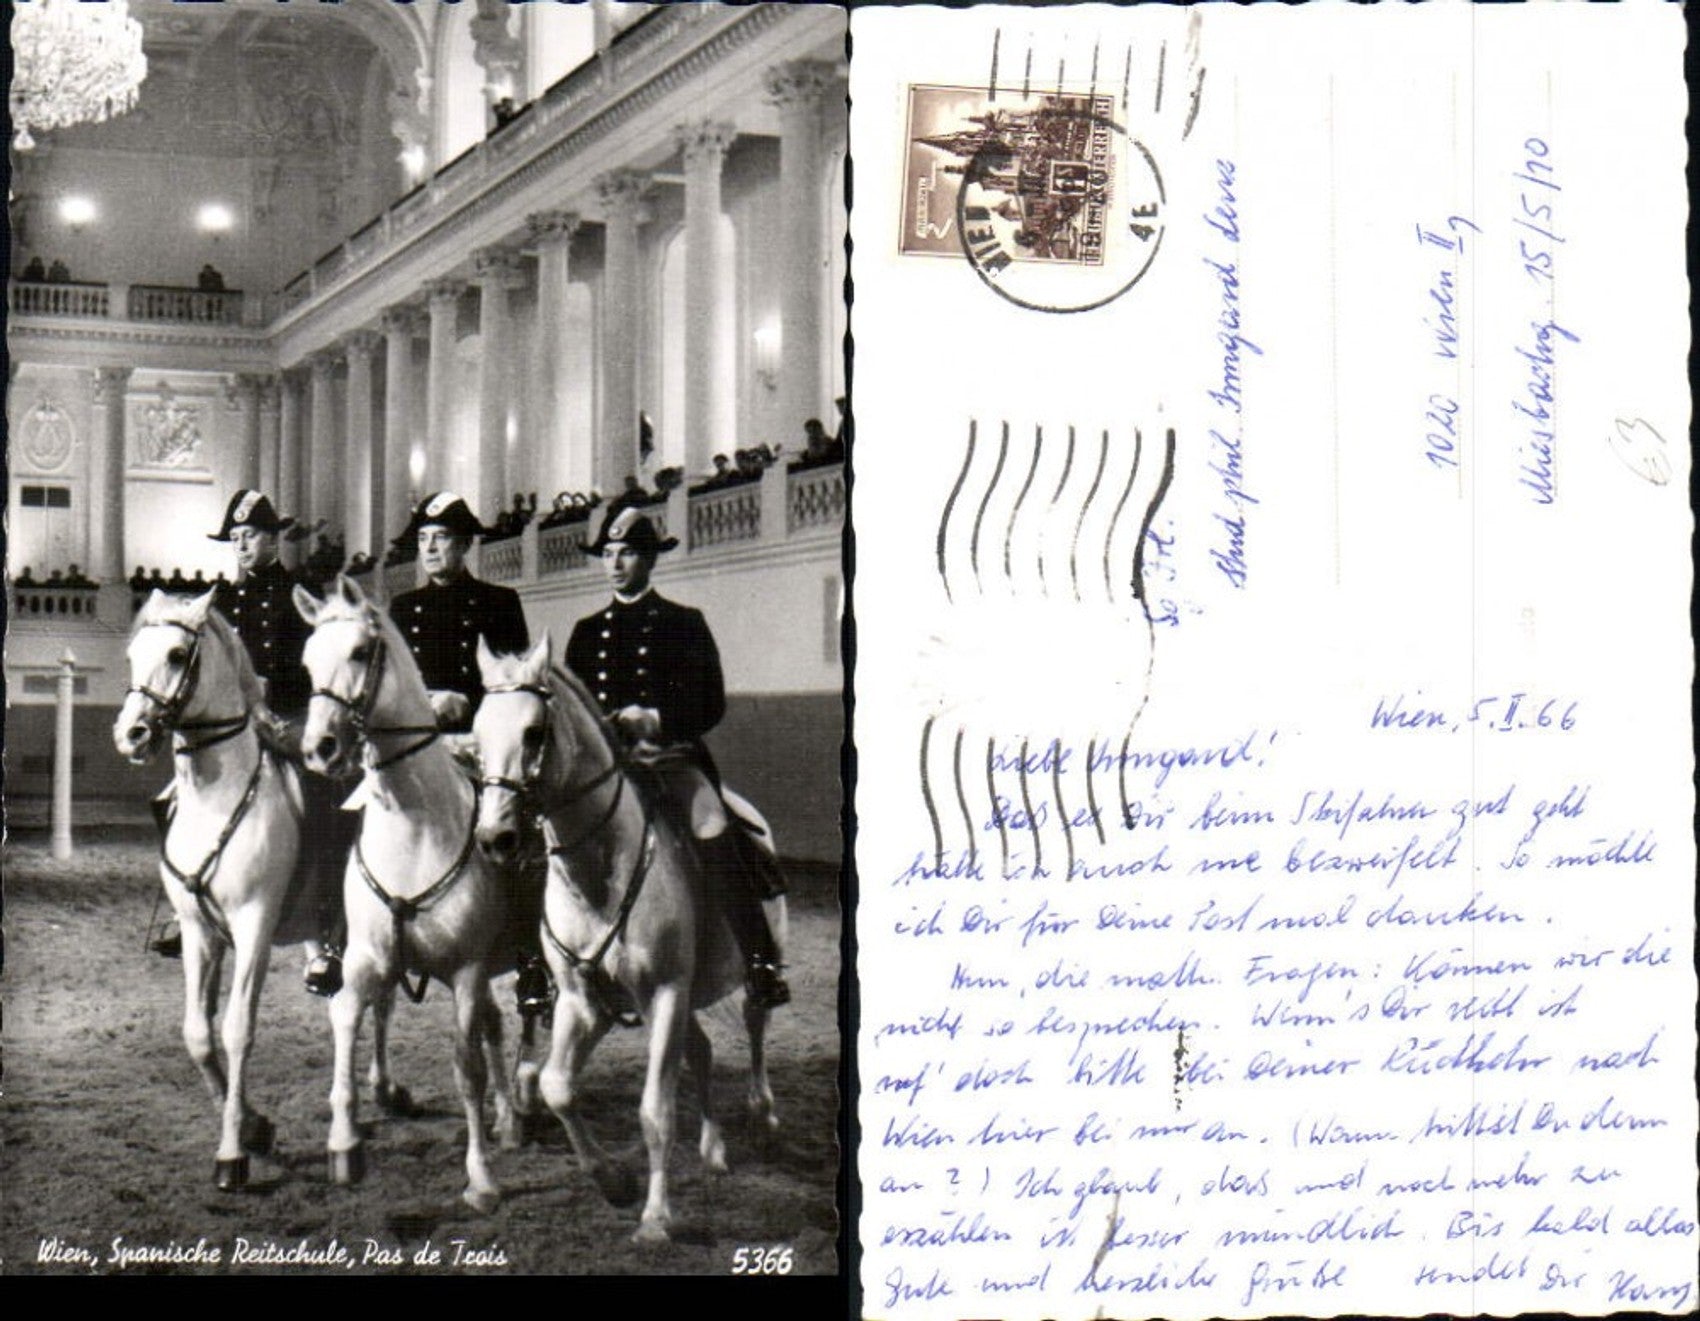 Wien, Spanische Reitschule, Pas de Trois
5366
REPUBLIK ÖSTERREICH
WIEN
4E
Frl.
stud phil. Irmgard
1020 Wien II
Miesbachg. 15/5/10
€3
Wien, 5.II.66
Liebe Irmgard!
Daß es Dir beim Skifahren gut geht
hätte ich auch nie bezweifelt. So möchte
ich Dir für Deine Post mal danken.
Nun, die math. Fragen: Können wir die
nicht so besprechen. Wenn's Dir recht ist
ruf' doch bitte bei Deiner Rückkehr nach
Wien hier bei mir an. (Wann trittst Du denn
an?) Ich glaub, das und noch mehr zu
erzählen ist besser mündlich. Bis bald alles
Gute und herzliche Grüße sendet Dir Hans